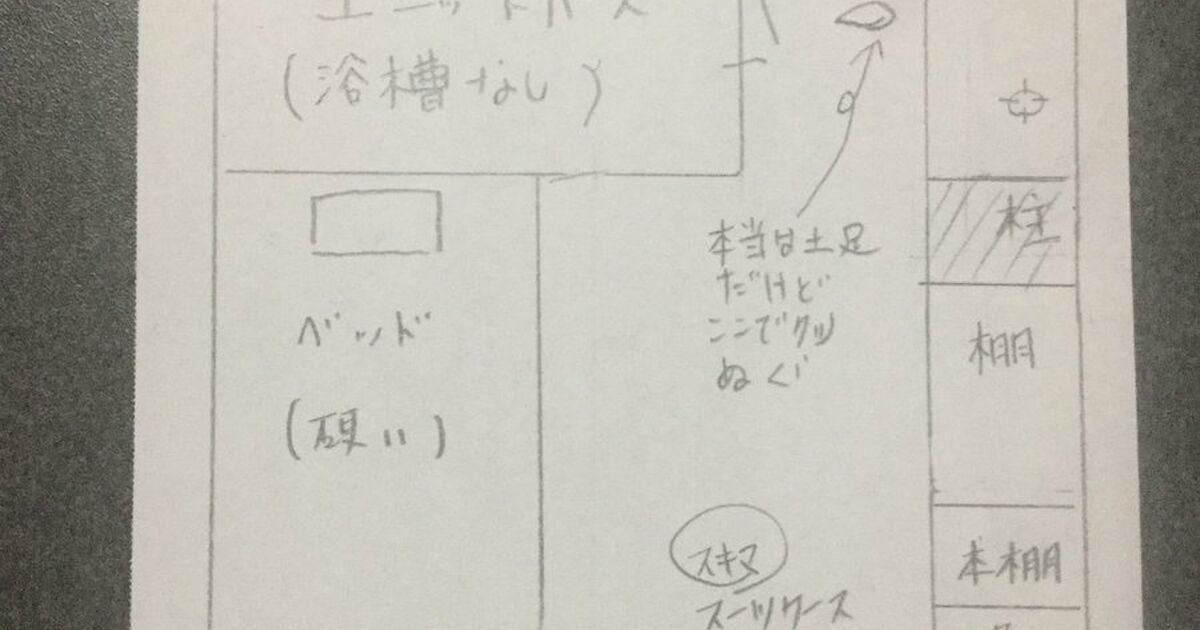 ユニットバス
(浴槽なし)
柱
本当は土足
だけど
ここでクツ
ぬぐ
ベッド
(硬い)
棚
スキマ
スーツケース
本棚